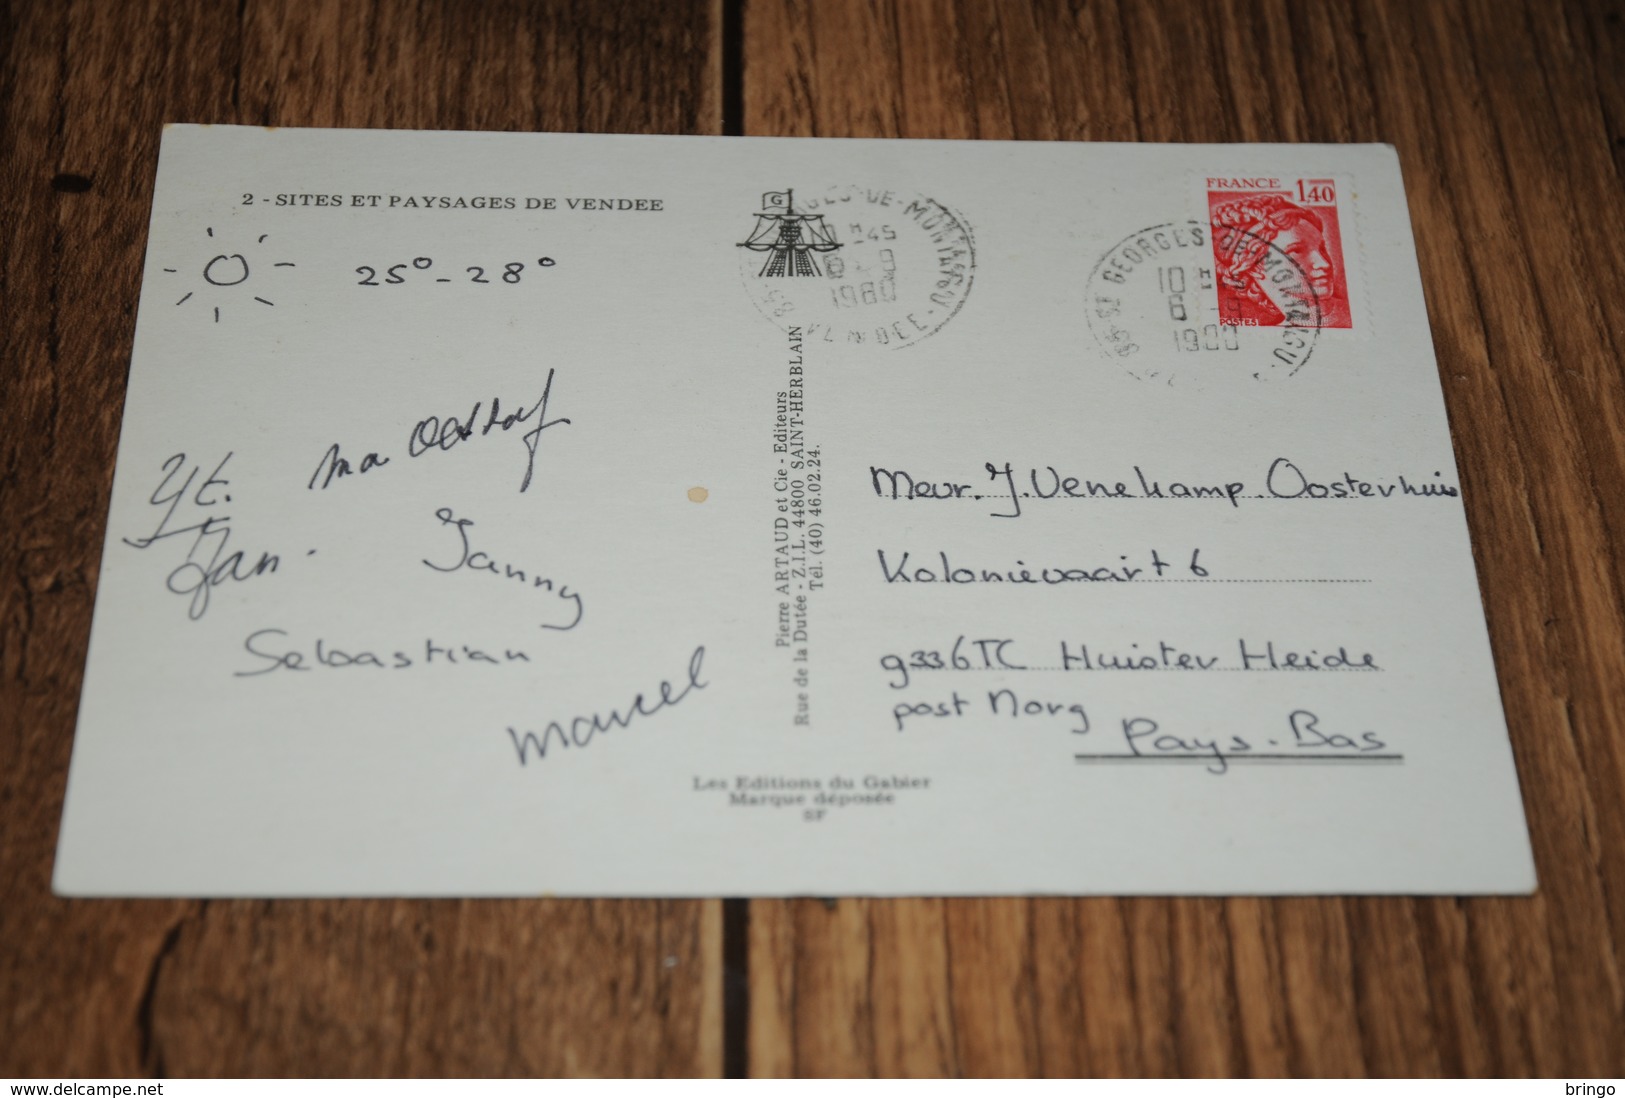 2 - SITES ET PAYSAGES DE VENDEE
25° - 28°
Yt.
ma Olddorf
Jan.
Janny
Sebastian
Marcel
G
Pierre ARTAUD et Cie - Editeurs
Rue de la Dutée - Z.I.L. 44800 SAINT-HERBLAIN
Tél. (40) 46.02.24.
Les Editions du Gabier
Marque déposée
SF
GES-DE-MONTAIGU
10 H 45
6 - 9
1980
VENDEE
85 ST GEORGES DE MONTAIGU
10 H
6
1980
FRANCE 1,40
POSTES
Meur. J. Venekamp Oosterhuis
Kolonievaart 6
9336TC Huister Heide
post Norg
Pays-Bas
www.delcampe.net
bringo